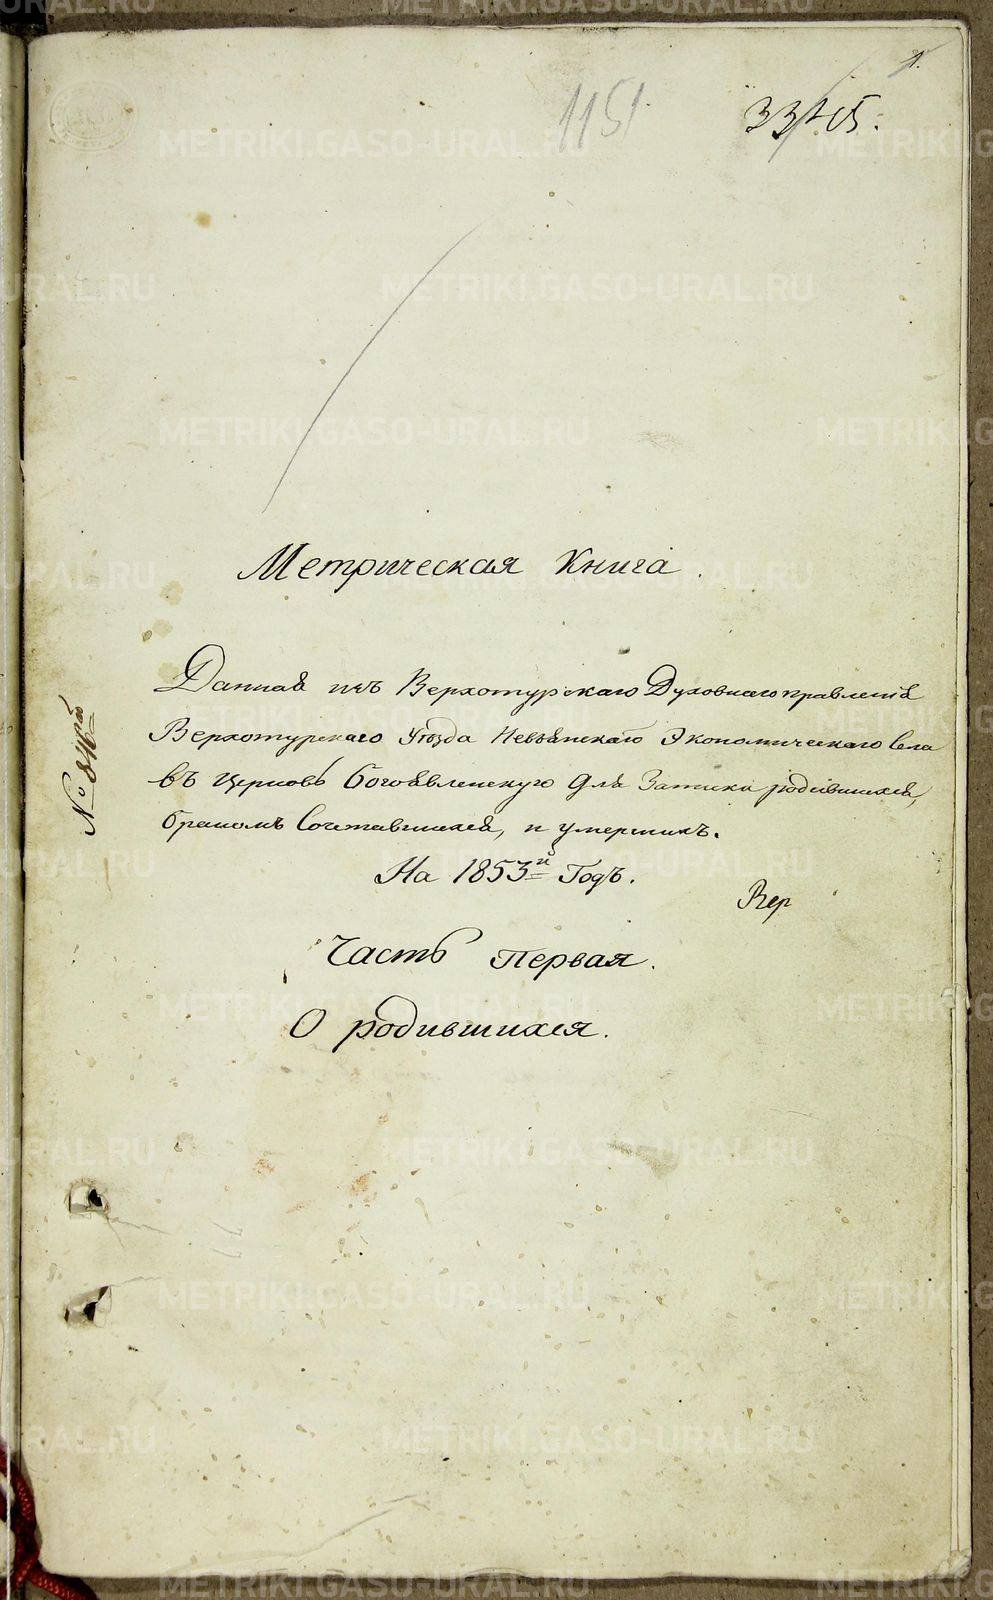 1.
1151
Метрическая Книга.
Данная изъ Верхотурскаго Духовнаго правленія
Верхотурскаго Уѣзда Невьянскаго Экономическаго Села
въ Церковь Богоявленскую для Записки родившихся,
бракомъ Сочетавшихся, и умершихъ.
На 1853й Годъ.
Вер
Часть первая.
О родившихся.
METRIKI.GASO-URAL.RU